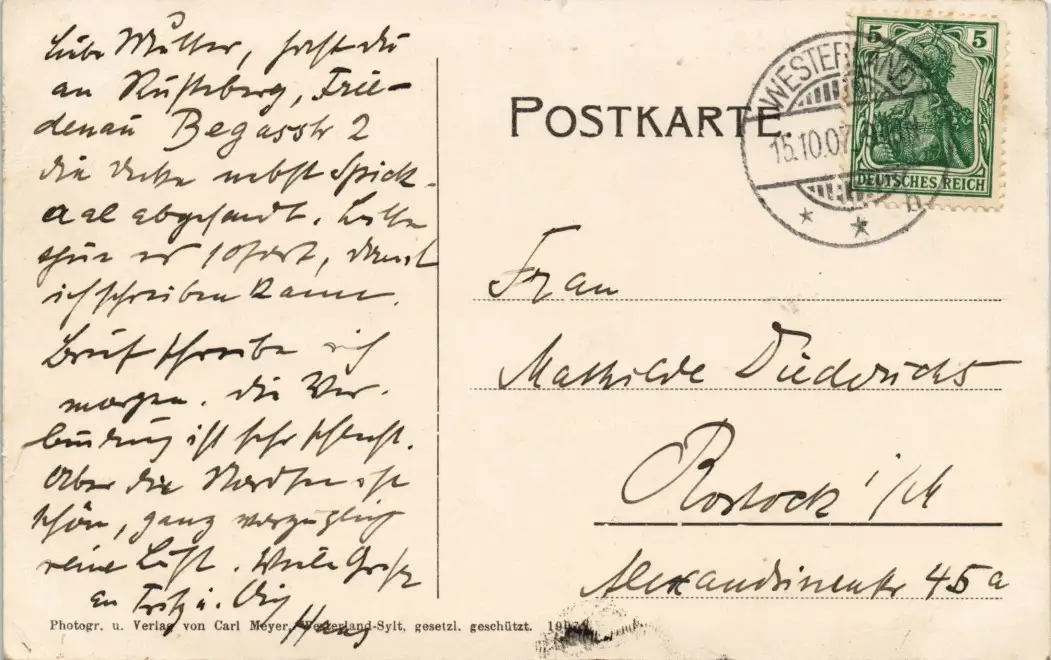 Liebe Mutter, hast du
an Rustsberg, Frie-
denau Begasstr 2
die Decke nebst Spick-
aal abgesandt. Bitte
thue es sofort, damit
ich schreiben kann.
Brief schreibe ich
morgen. Die Ver-
bindung ist sehr schlecht.
Aber die Nordsee ist
schön, ganz vorzüglich
reine Luft. Viele Grüße
an Fritz u.
Hans
Photogr. u. Verlag von Carl Meyer, Westerland-Sylt, gesetzl. geschützt.
POSTKARTE.
WESTERLAND
15.10.07
5 5
DEUTSCHES REICH
Frau
Mathilde Diederichs
Rostock i/M
Alexandrinenstr 45a